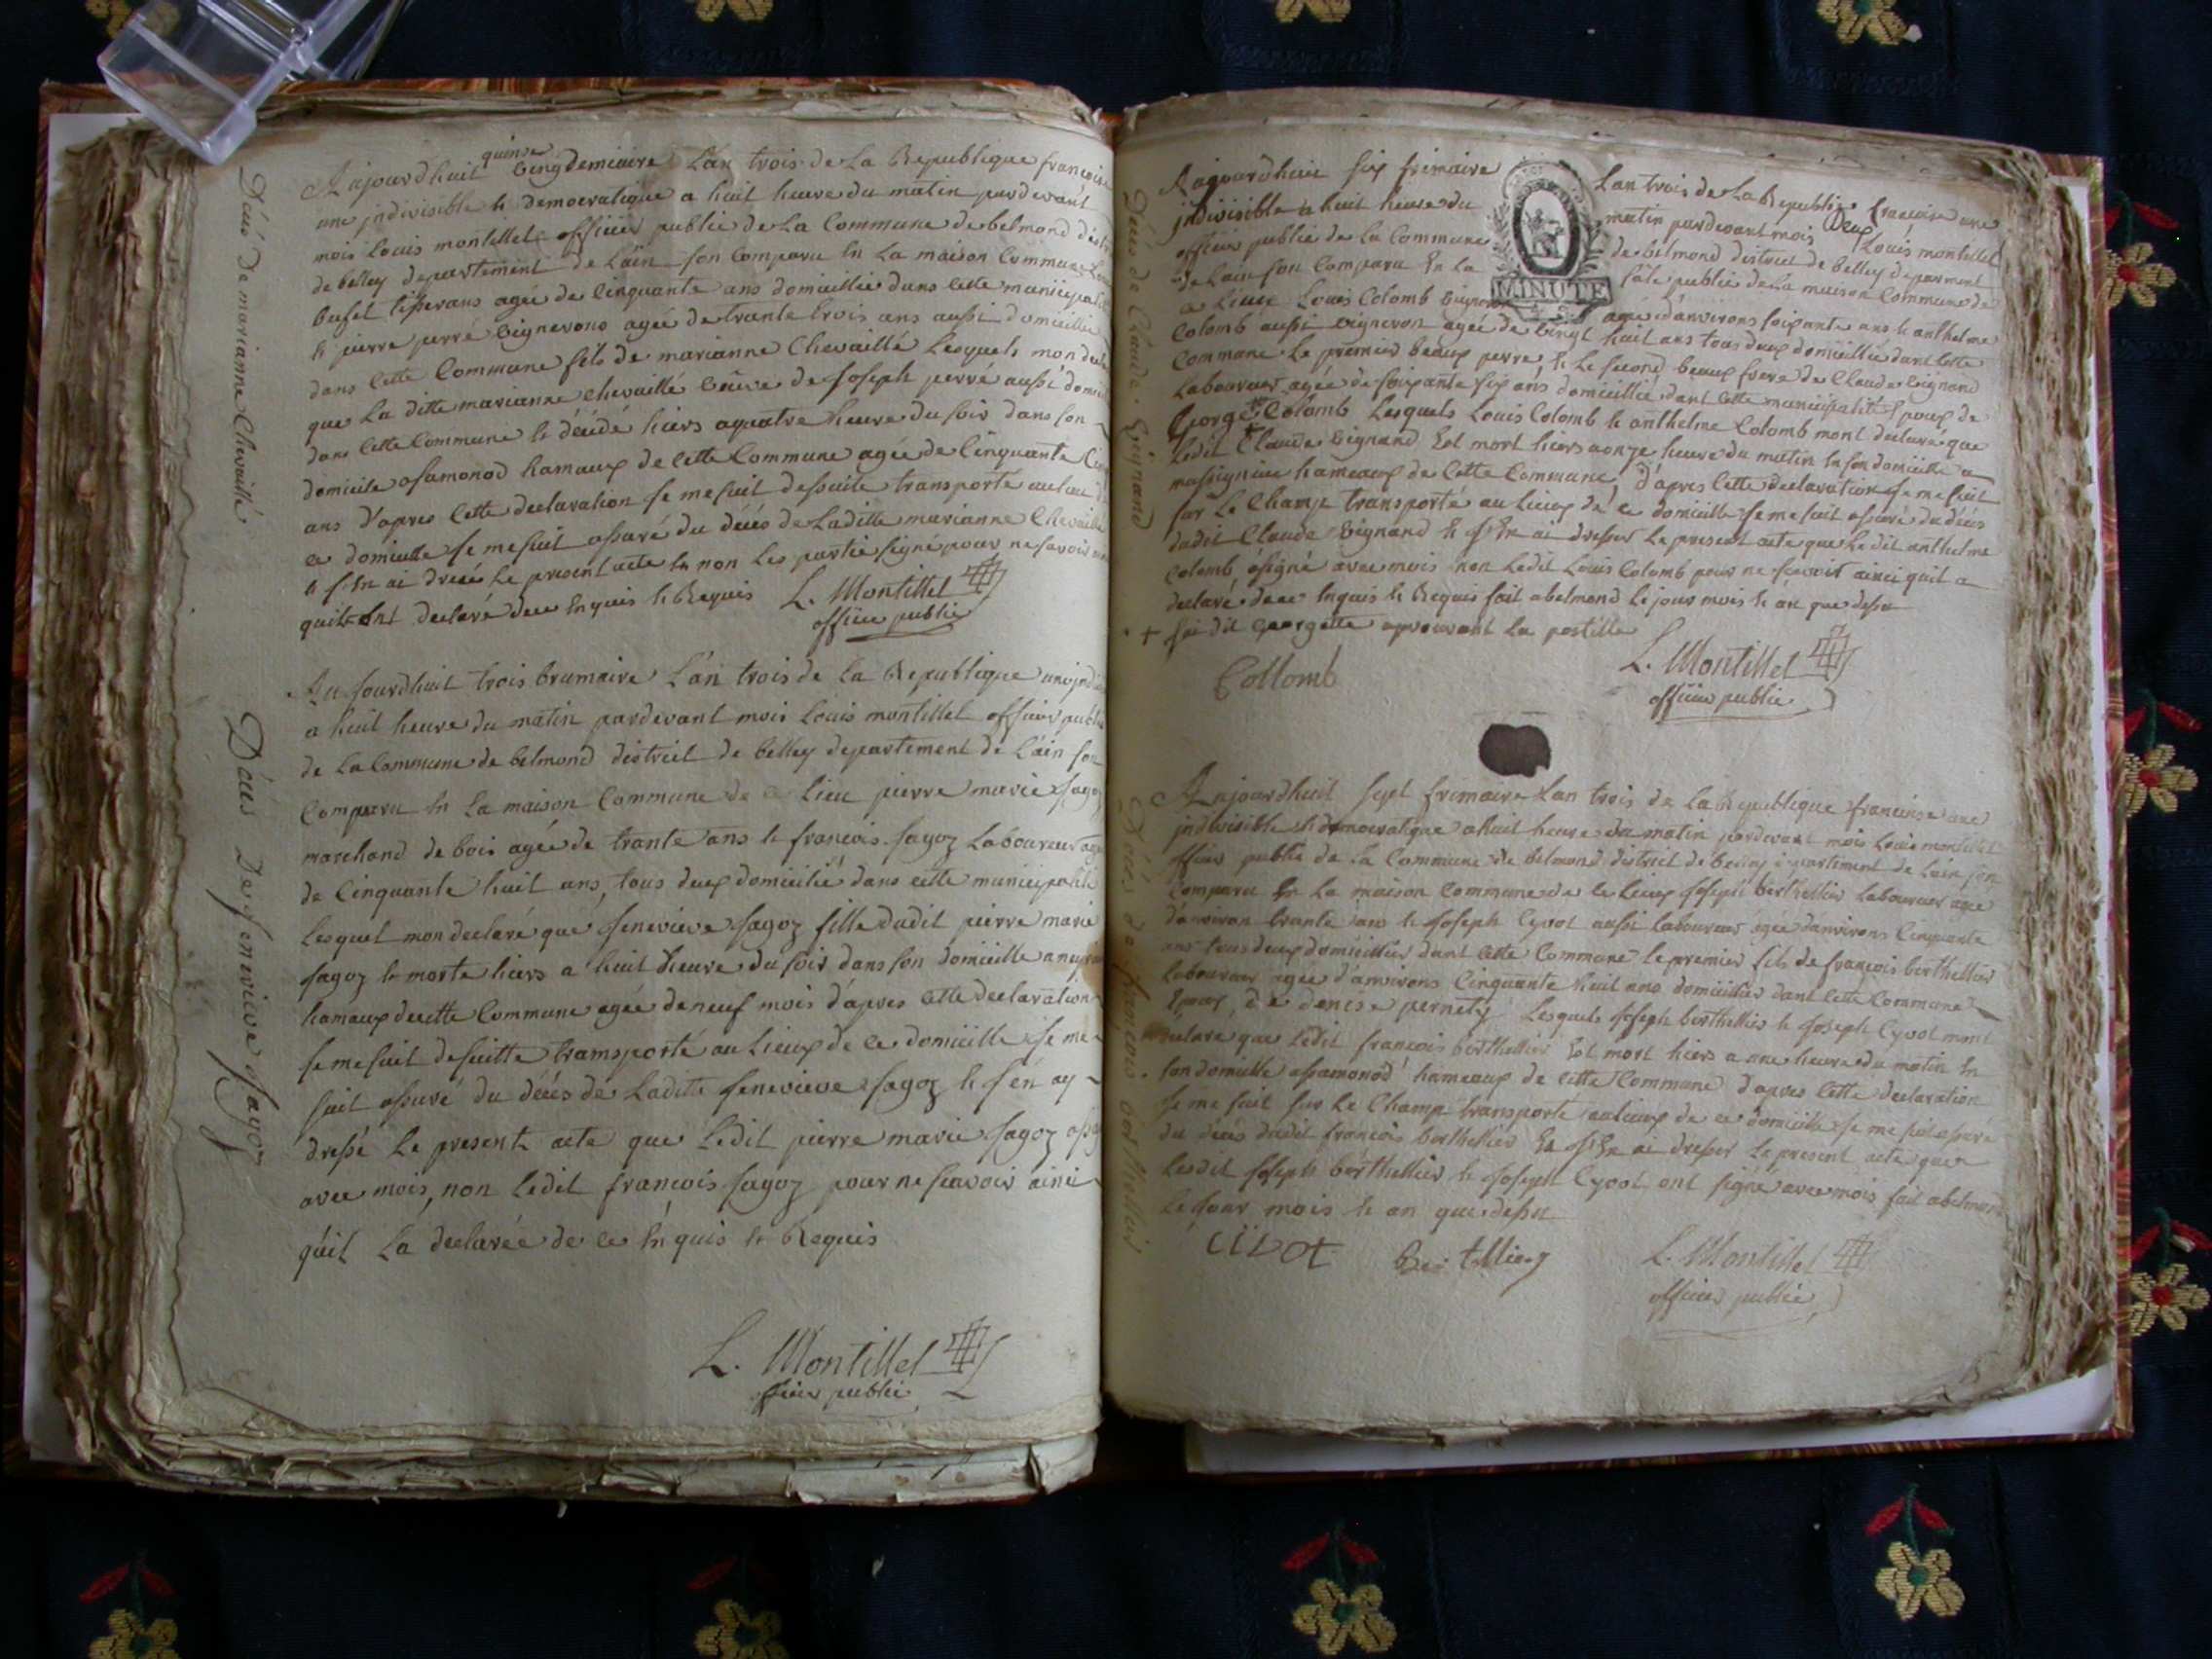 Décès de marianne Chevaillé
quinse
Aujourdhuit Vingdemiaire L'an trois de La Republique françoise
une jndivisible et democratique a huit heure du matin pardevant
mois Louis montillet officier public de La Commune de belmond
de belley departement de Lain son Comparu En La maison Commune
buset tisserans agée de Cinquante ans domicillié dans Cette municipalité
et pierre perré Vignerons agée de trante trois ans aussi domicillié
dans Cette Commune fils de marianne Chevaillé Lesquels mon declaré
que La ditte marianne chevaillé veuve de Joseph perré aussi
dans Cette Commune et décédé hiers aquatre heure du soir dans son
domicile assamonod hamaux de Cette Commune agée de Cinquante
ans d'apres Cette declaration Je me suit dessuite transporté au lieu
ce domicille Je me suit assuré du décés de Laditte marianne Chevaillé
et J'En ai dressé Le present acte En non Les partie signé pour ne savoir
quils Ont declaré dece Enquis et Requis
L. Montillet
officier public
Décés De Jenevieve Jagoz
Aujourdhuit trois brumaire L'an trois de La Republique une
a huit heure du matin pardevant mois Louis montillet officier public
de La Commune de belmond district de belley departement de L'ain son
Comparu En La maison Commune de ce Lieu pierre marie Jagoz
marchand de bois agée de trante ans et francois Jagoz Laboureur
de Cinquante huit ans, tous deux domicilié dans cette municipalité
Lesquel mon declaré que Jenevieve Jagoz fille dudit pierre marie
Jagoz et morte hiers a huit heure du soir dans son domicille
hamaux decette Commune agée de neuf mois d'apres Cette declaration
Je me suit desuitte transporté au Lieux de ce domicille Je me
suit assuré du décés de Laditte Jenevieve Jagoz et J'en ay
dressé Le present acte que Ledit pierre marie Jagoz
avec mois, non Ledit francois Jagoz pour ne scavoir ainci
quil La declarée de ce Enquis et Requis
L. Montillet
officier public
Décés de Claude Vignand
Aujourdhuit six frimaire L'an trois de La Republique francoise une
jndivisible a huit heure du matin pardevant mois Louis montillet
officier public de La Commune de belmond district de belley deparment
de Lain son Comparu En La sale public de La maison Commune de
ce Lieux Louis Colomb Vigneron agée d'anvirons soixante ans et anthelme
Colomb aussi vigneron agée de vingt huit ans tous deux domicillié dant Cette
Commune Le premier beaux perre, et Le second beaux frere de Claude Vignand
Laboureur agée de soixante six ans domicillié dant Cette municipalité Epoux de
George Colomb Lesquels Louis Colomb et anthelme Colomb mont declaré que
Ledit Claude Vignand Est mort hiers aonze heure du matin En son domicille a
massignieu hameaux de Cette Commune, d'apres Cette declaration Je me suit
sur Le Champ transporté au Lieux de ce domicille Je me suit assuré du décés
dudit Claude Vignand et J'En ai dresser Le present acte que Le dit anthelme
Colomb assigné avec mois non Ledit Louis Colomb pour ne scavoir ainci quil a
declaré dece Enquis et Requis fait abelmond Le jour mois et an que dessu
+ Jai dit Georgette aprouvant La postille
MINUTE
Collomb
L. Montillet
officier public
Décés de francois berthellier
Aujourdhuit sept frimaire L'an trois de La Republique francoise une
jndivisible et democratique ahuit heure du matin pardevant mois Louis montillet
officier public de La Commune de belmond district de belley departement de Lain son
Comparu En La maison Commune de ce Lieux Joseph berthellier Laboureur agée
d'anviron trante ans et Joseph Cyvot aussi Laboureur agée danvirons Cinquante
ans tous deux domicillier dant Cette Commune Le premier fils de françois berthellier
Laboureur agée d'anvirons Cinquante huit ans domicillier dant Cette Commune
Epoux de denise pernety Lesquels Joseph berthellier et Joseph Cyvot mont
declaré que Ledit francois berthellier Est mort hiers a une heure du matin En
son domicille assamonod hameaux de Cette Commune d'apres Cette declaration
Je me suit sur Le Champ transporté au Lieux de ce domicille Je me suit assuré
du décés dudit francois berthellier Et J'En ai dresser Le present acte que
Lesdit Joseph berthellier et Joseph Cyvot ont signé avec mois fait abelmond
Le jour mois et an que dessu
CiVot
Bertellier
L. Montillet
officier public